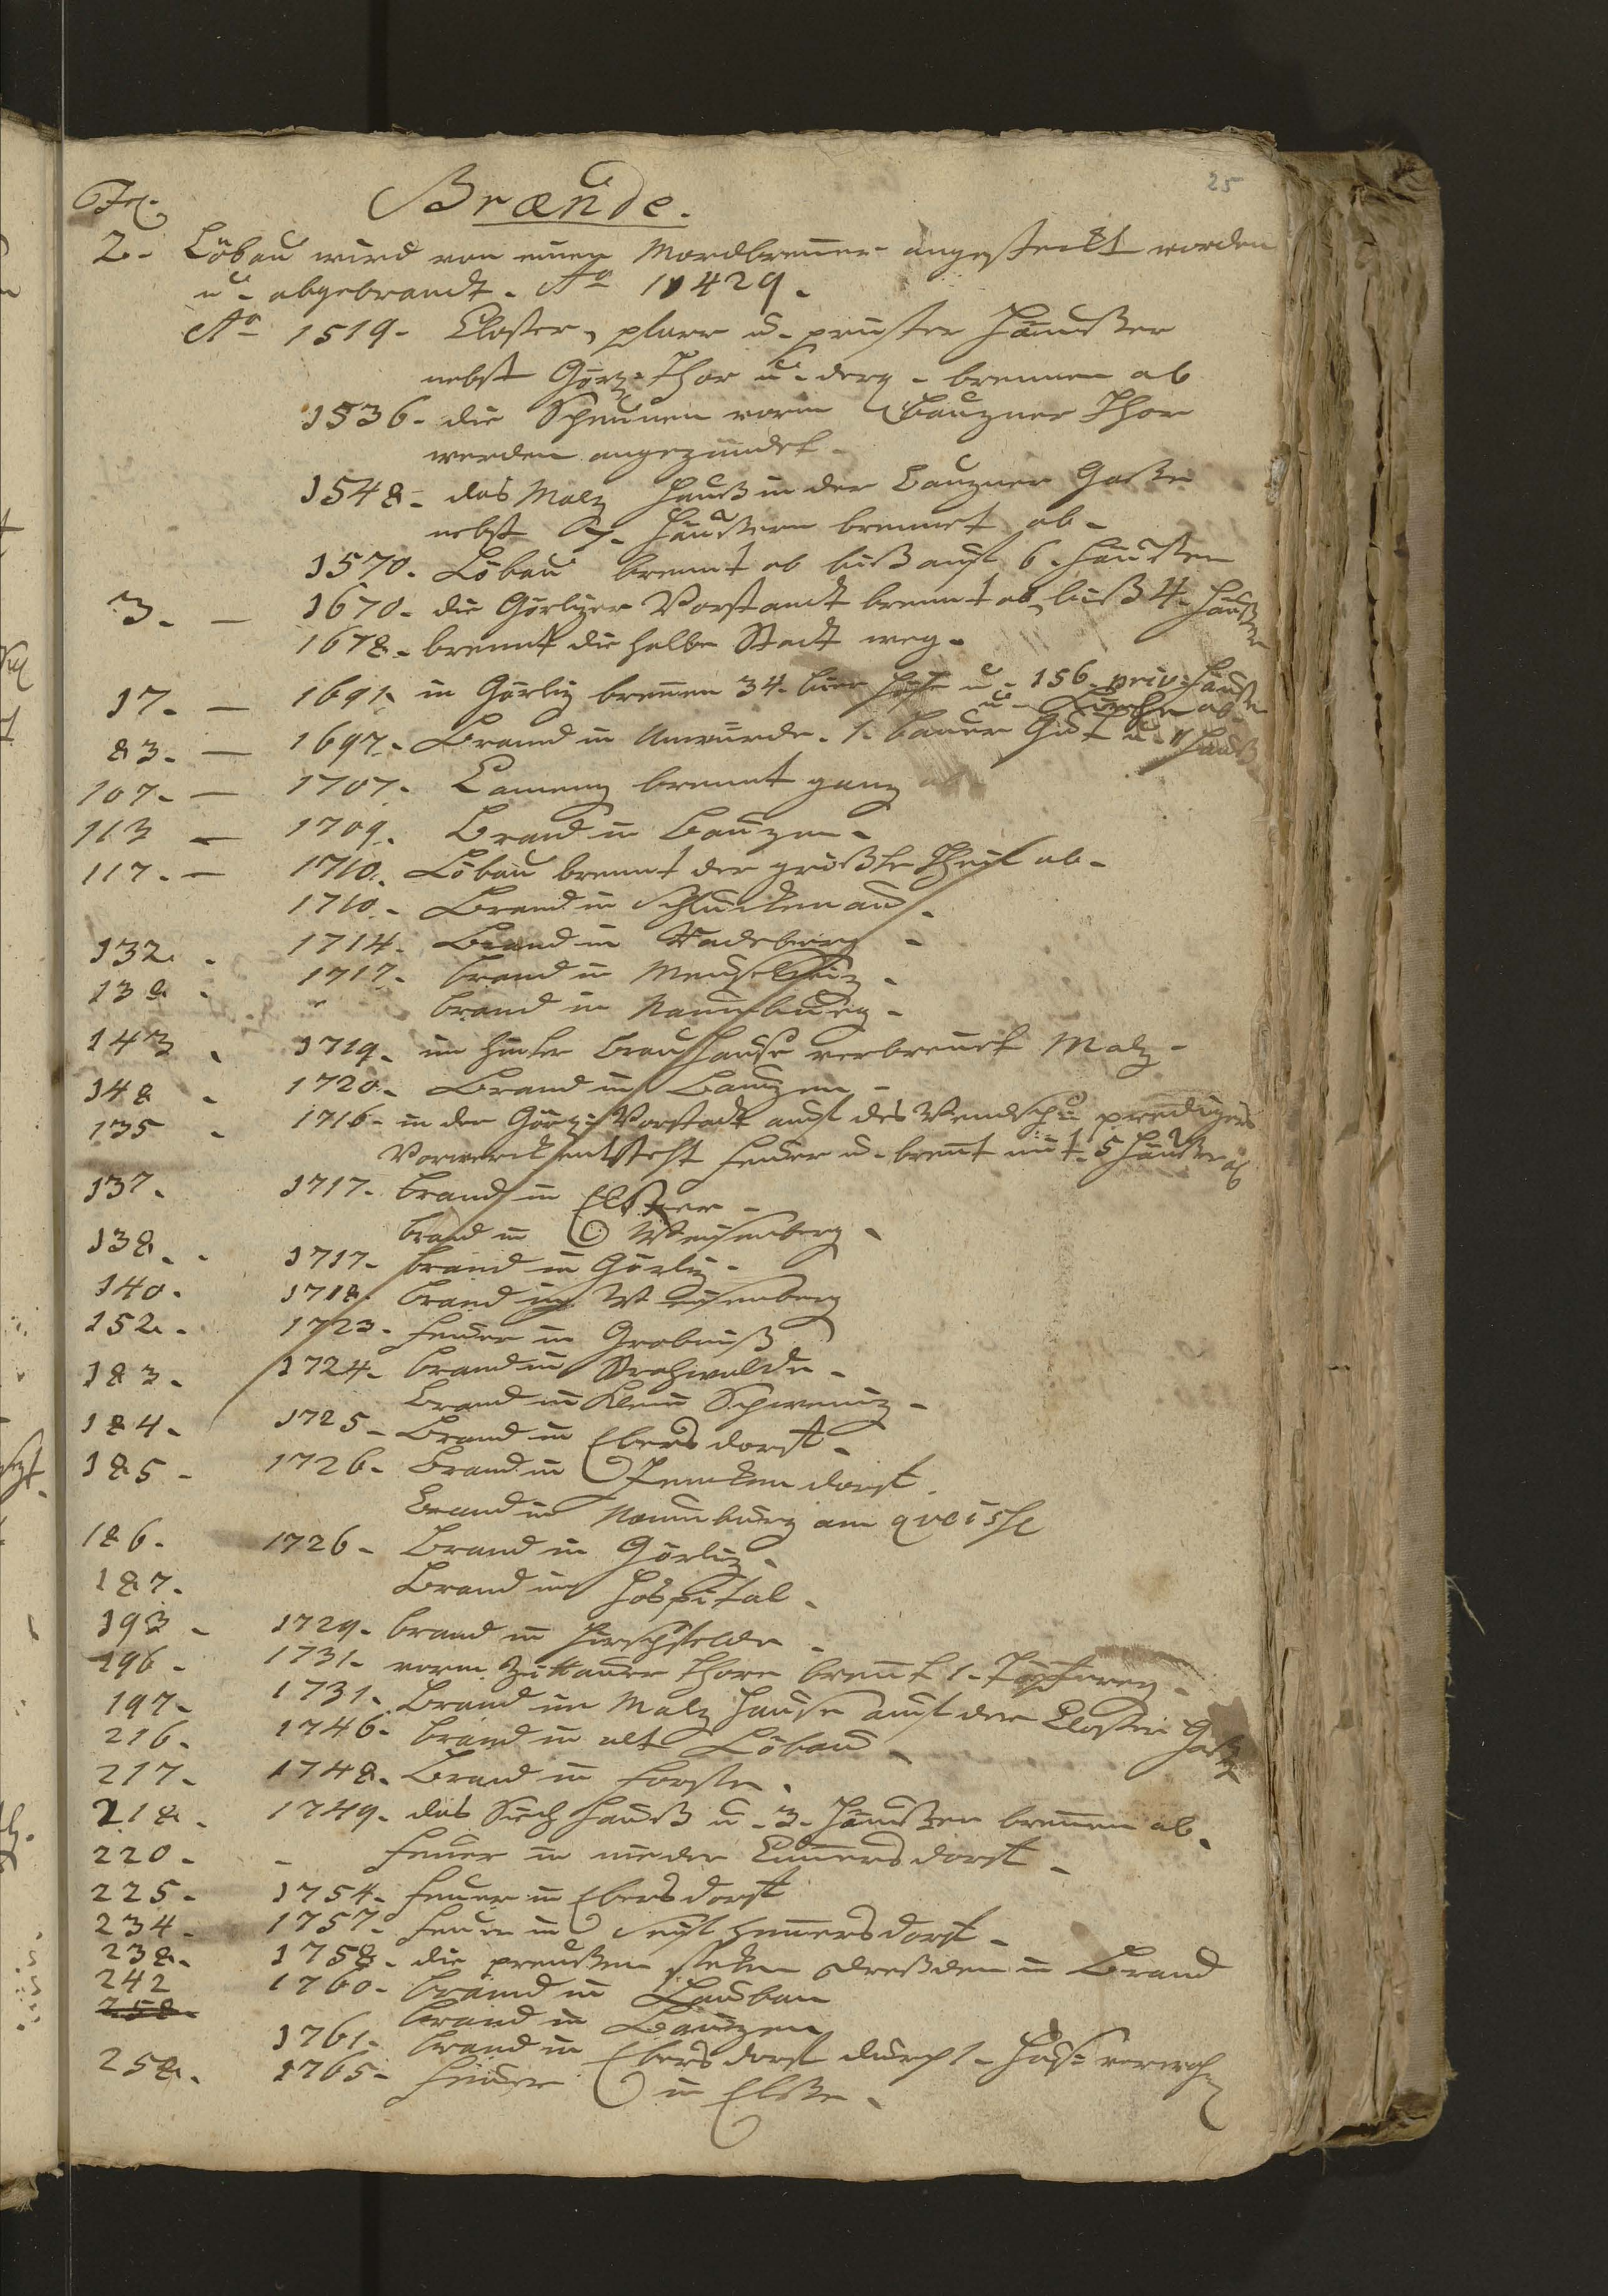 25
Fol. Brænde.
2. Löbau wird von einen Mordbrenner angesteckt worden
u. abgebrandt. Ao 1429.
Ao 1519. Closter, pfarr u. priester Häuußer
nebst Görz. Thor u. derg. brennen ab
1536. die Scheunen vorm Bauzner Thor
werden angezündet.
1548. das Malz Hauß in der Bauzner Gaßen
nebst Häußern brennet ab.
1570. Löbau brennt ab biß auf 6. Häußer
3. — 1670. die Görlizer Vorstandt brennt ab, biß 4. Häußer
1678. brennt die halbe Stadt weg.
17. — 1691. in Görliz brennen 34. bier Höfe u. 156. priv. Häußer
u. Kirche ab
83. — 1697. Brand in Unwürde. 1. Bauer Gut u. 1 Hauß
107. — 1707. Camenz brennt ganz ab
113 — 1709. Brand in Bauzen.
117. — 1710. Löbau brennt der größte Theil ab.
1710. Brand in Schluckenau.
132. 1714. Brand in Radeberg.
138. 1717. brand in Meuselwiz.
" brand in Naumburg.
143. 1719. im hinter Brauhause verbrennt Malz.
148. 1720. Brand in Bauzen.
135. 1716. in der Görz. Vorstadt auf des Wendsch. predigers
Vorwerck entsteht feuer u. brent mit 5 Häußer ab
137. 1717. brand in Elster.
brand in Weisenberg.
138. 1717. brand in Görliz.
140. 1718. brand in Weisenberg
152. 1723. feuer in Grobniß
183. 1724. brand in Strahwalde.
Brand in Klein Schweniz.
184. 1725. Brand in Ebersdorf.
185. 1726. Brand in Jenckendorf.
Brand in Naumburg am qveisse
186. 1726. Brand in Görliz.
187. Brand im Hospital.
193. 1729. brand in Hirschfelde.
196. 1731. vorm Zittauer Thore brennt 1. Töpferey.
197. 1731. Brand im Malz Hause auf der Closter Gaße
216. 1746. brand in alt Löbau.
217. 1748. Brand in forste.
218. 1749. das Siech Hauß u. 3. Häußer brennen ab.
220. - feuer in nieder Cunnersdorf.
225. 1754. feuer in Ebersdorf
234. 1757. feuer in Seifhennersdorf.
238. 1758. die preußen steken Dreßden in Brand
242 1760. brand in Lauban
258. brand in Bauzen
1761. brand in Ebersdorf durch 1.
258. 1765. feuer in Elße.